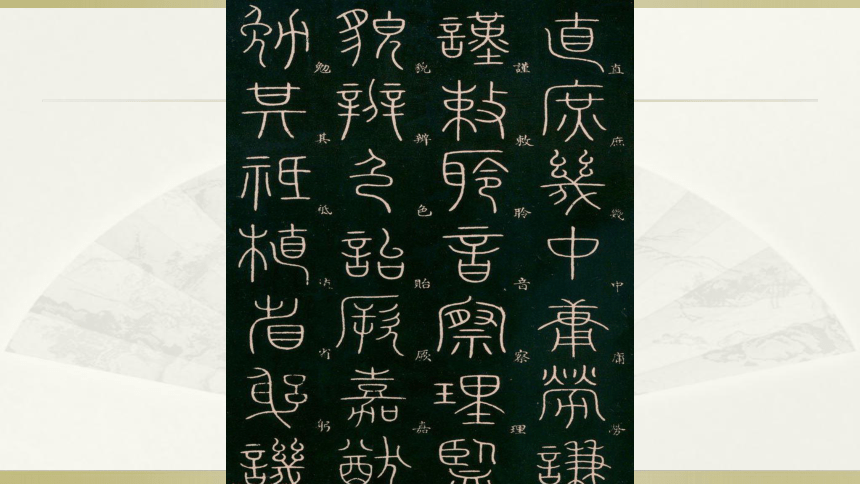 直庶幾中庸勞謙
直庶幾中庸勞
謹敕聆音察理鑒
謹敕聆音察理
貌辨色詒厥嘉猷
貌辨色貽厥嘉
勉其祗植省躬譏
勉其祗省躬